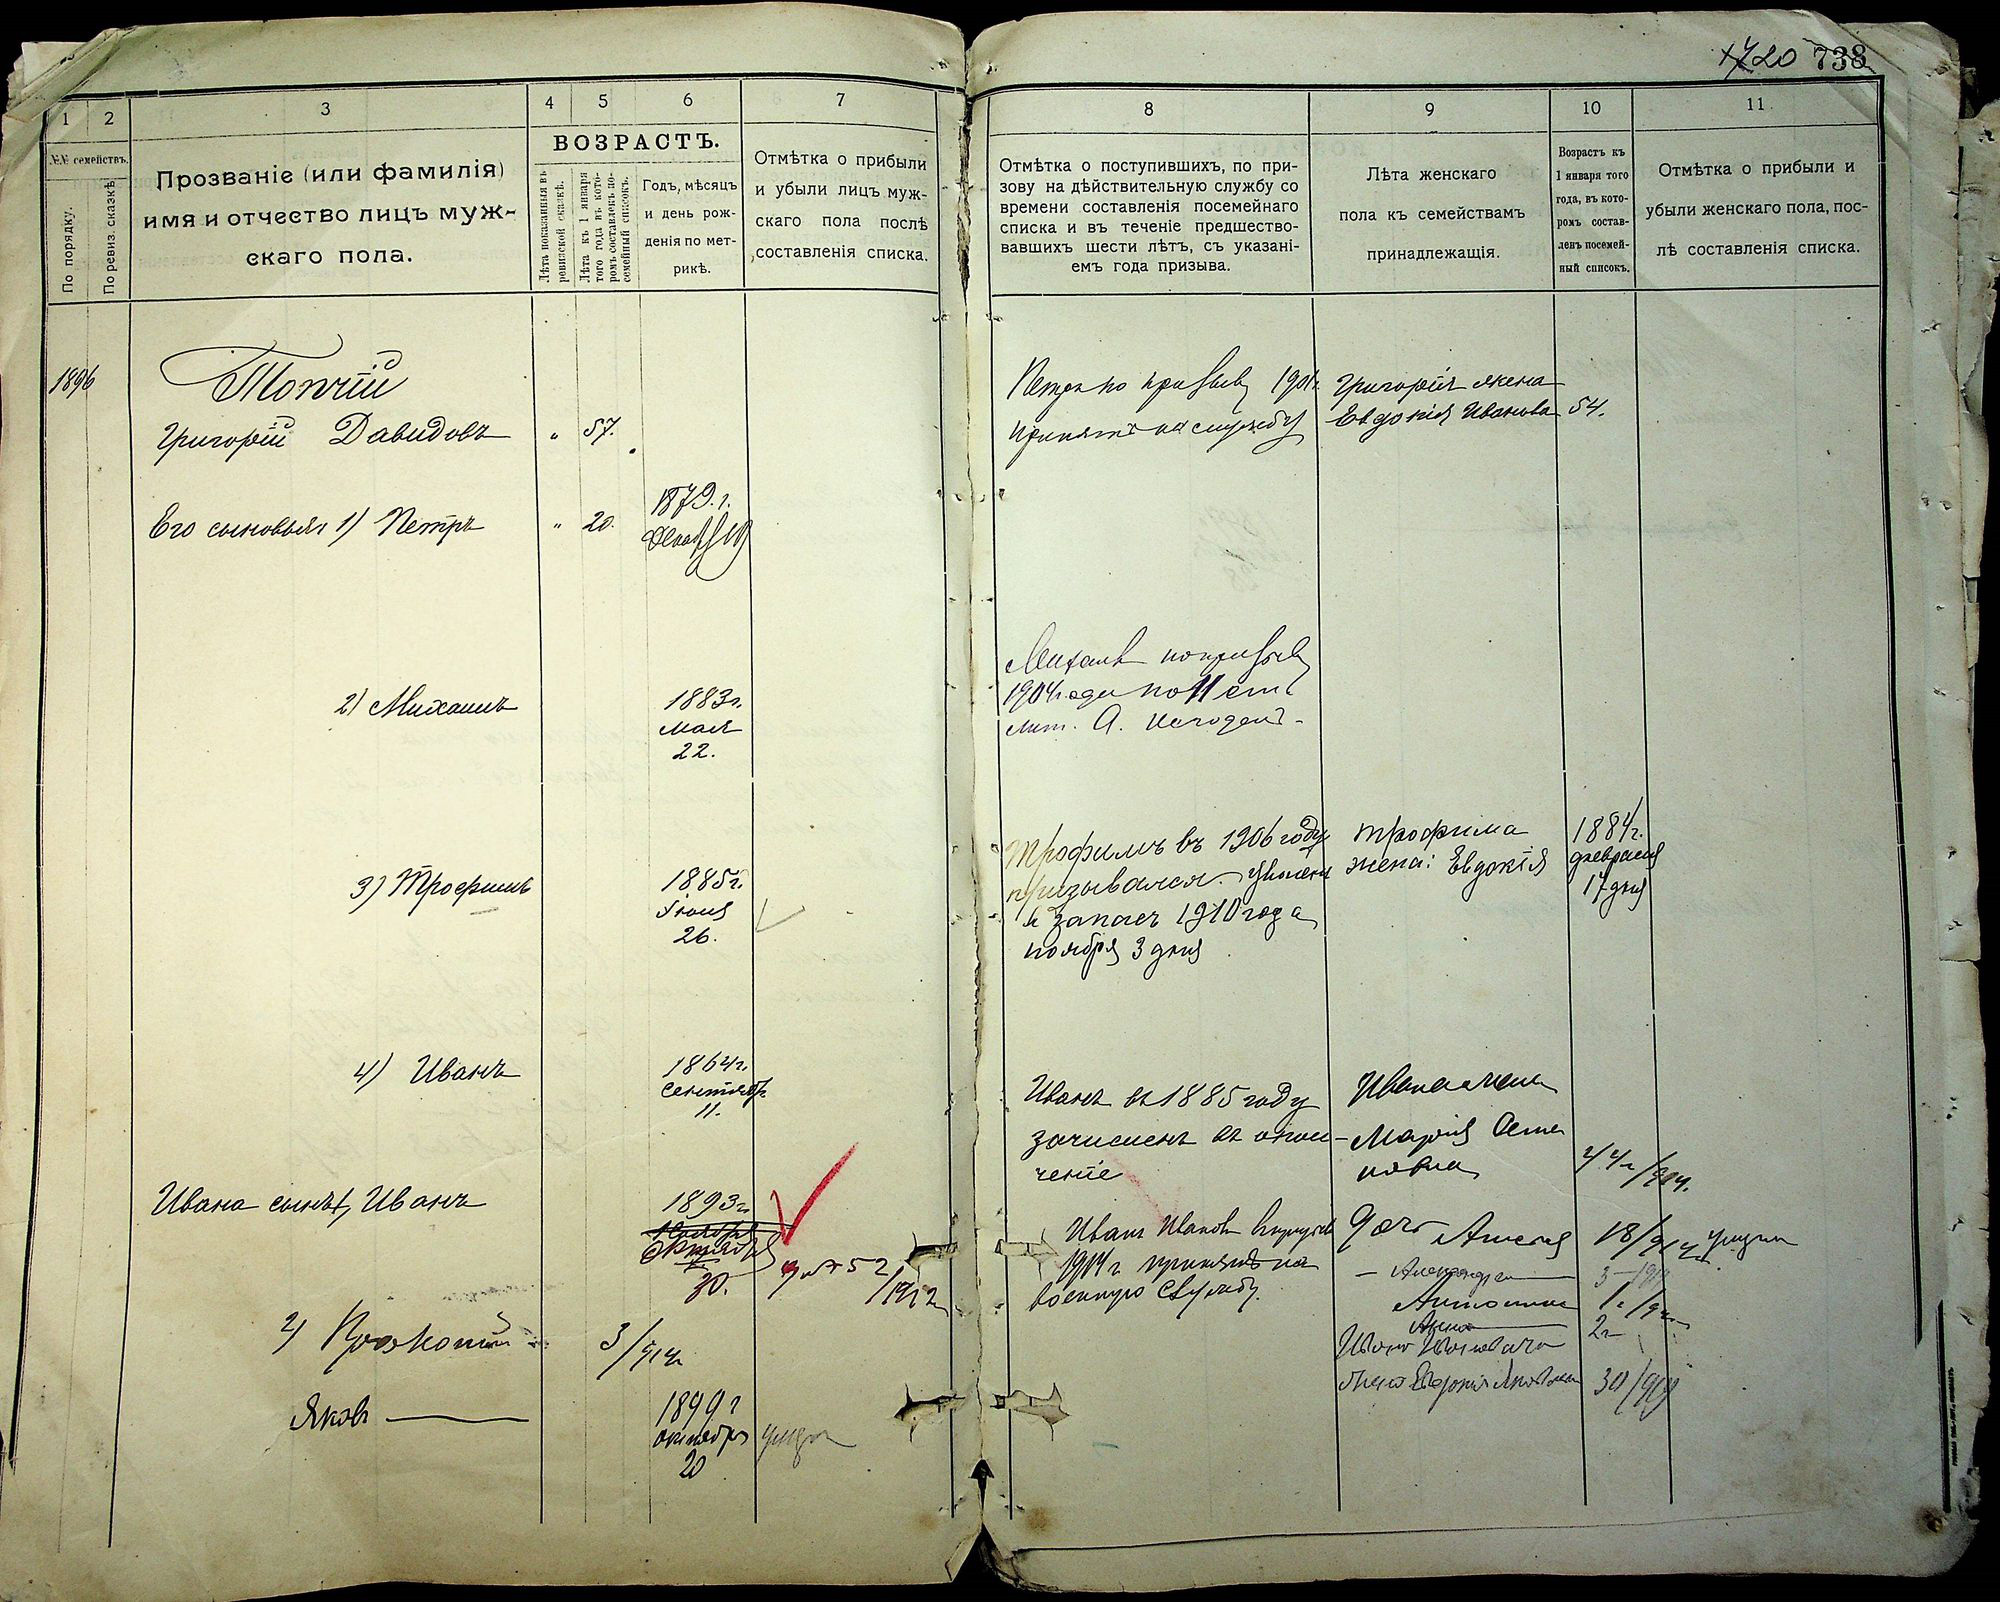 720 738
1 2 3 4 5 6 7
№№ семействъ.
По порядку.
По ревиз. сказкѣ
Прозваніе (или фамилія)
имя и отчество лицъ муж-
скаго пола.
ВОЗРАСТЪ.
Лѣта показанныя въ
ревизской сказкѣ.
Лѣта къ 1 января
того года въ кото-
ромъ составленъ по-
семейный списокъ.
Годъ, мѣсяцъ
и день рож-
денія по мет-
рикѣ.
Отмѣтка о прибыли
и убыли лицъ муж-
скаго пола послѣ
составленія списка.
8 9 10 11
Отмѣтка о поступившихъ, по при-
зову на дѣйствительную службу со
времени составленія посемейнаго
списка и въ теченіе предшество-
вавшихъ шести лѣтъ, съ указані-
емъ года призыва.
Лѣта женскаго
пола къ семействамъ
принадлежащія.
Возрастъ къ
1 января того
года, въ кото-
ромъ состав-
ленъ посемей-
ный списокъ.
Отмѣтка о прибыли и
убыли женскаго пола, пос-
лѣ составленія списка.
1896
Топчій
Григорій Давидовъ " 57.
Его сыновья 1) Петръ " 20.
1879 г.
2) Михаилъ
1883 г.
мая
22.
3) Трофимъ
1885 г.
Іюня
26.
4) Иванъ
1864 г.
Сентябр
11.
Ивана сынъ 1, Иванъ
1893 г.
Октября
30.
52
/1912
2) Прокопій 3/914
Яковъ
1899 г
октябр
20
умер
Петръ по призыву 1901 г.
принятъ на службу
Михаилъ по призыву
1904 года по 11 ст
лит. А. негоденъ
Трофимъ въ 1906 году
призывался. уволенъ
въ запасъ 1910 года
ноября 3 дня
Иванъ въ 1885 году
зачисленъ въ опол-
ченіе
Иванъ Ивановъ
1914 г принятъ на
военную службу.
Григорія жена
Евдокія Иванова 54.
Трофима
жена: Евдокія
1884 г.
февраля
17 дня
Ивана жена
Марія Семе
новна 44 г/914.
дочь 18/914 умерла
Александра 3
Антонина 1
Анна 2 г
Ивана Ивановича
жена Евдокія Яковлевна 30/919